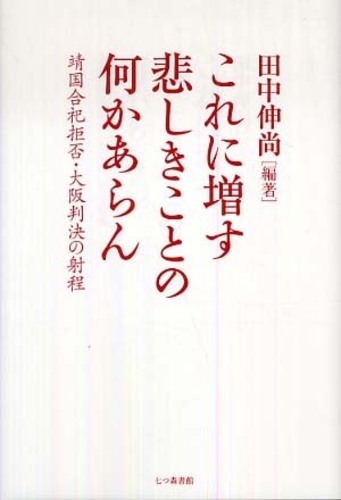 田中伸尚[編著]
これに増す
悲しきことの
何かあらん
靖国合祀拒否・大阪判決の射程
七つ森書館